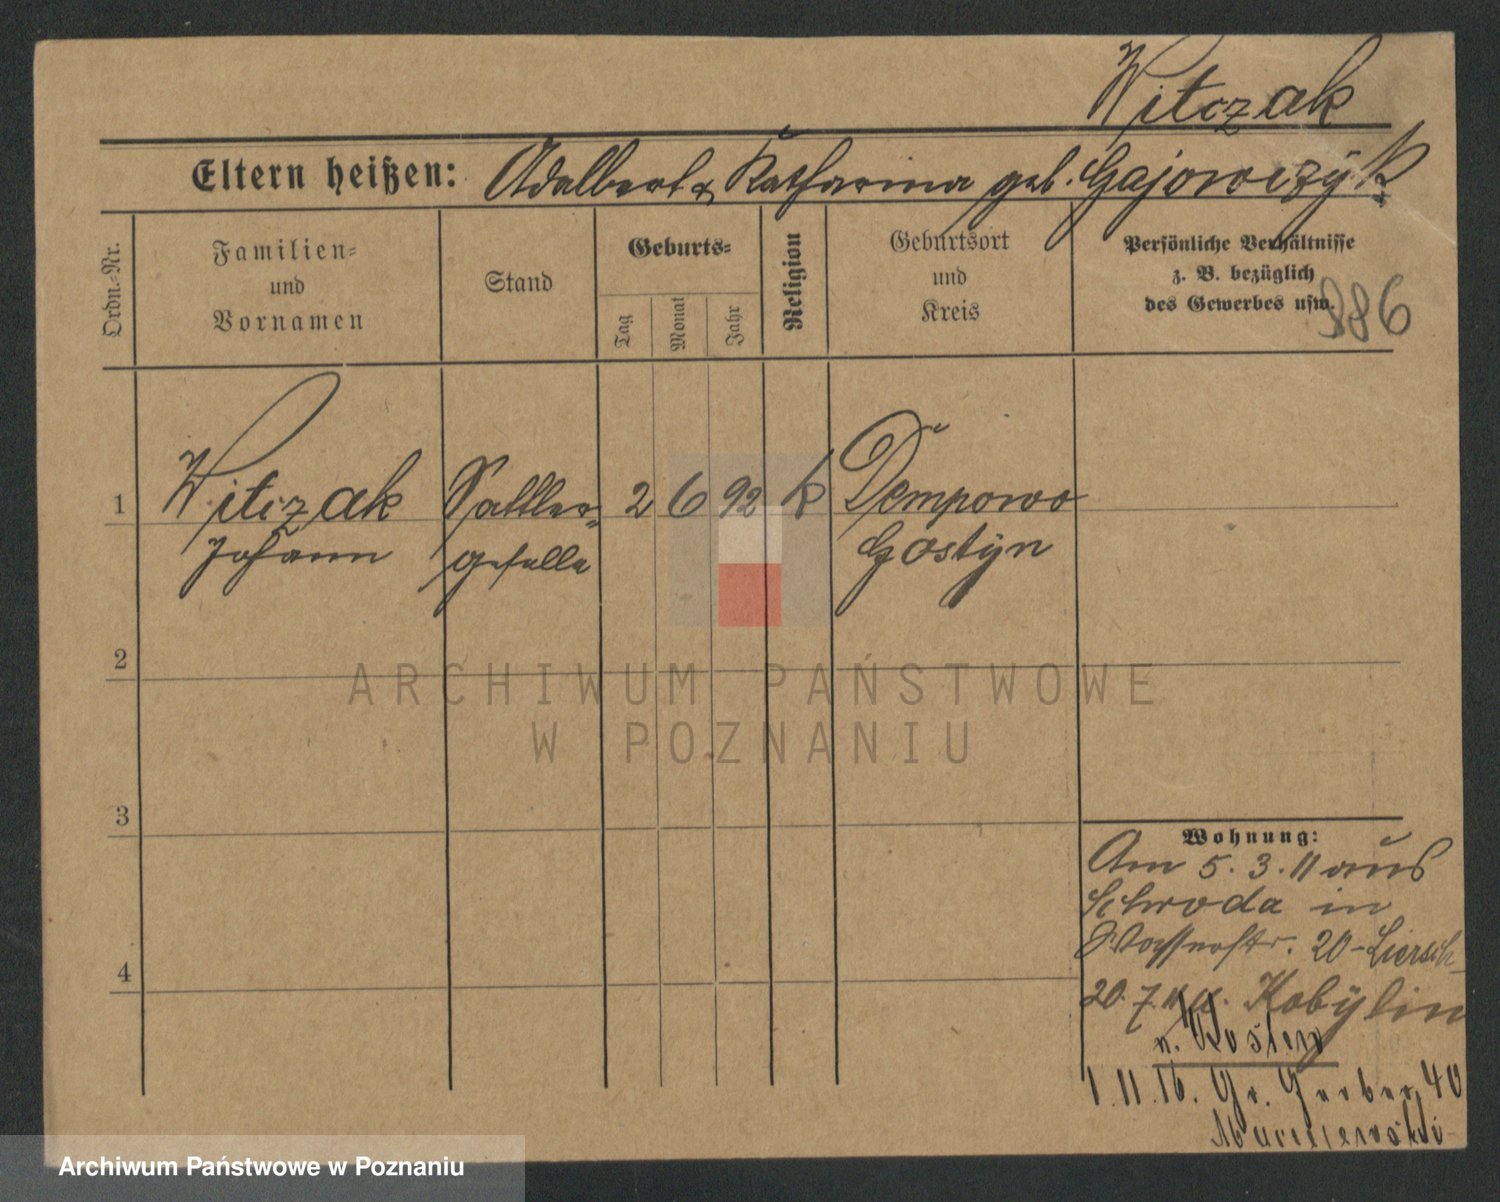 Witczak
Eltern heißen: Adalbert & Katharina geb. Gajowczyk
Ordn.-Nr.
Familien-
und
Vornamen
Stand
Geburts-
Tag
Monat
Jahr
Religion
Geburtsort
und
Kreis
Persönliche Verhältnisse
z. B. bezüglich
des Gewerbes usw.
886
1 Witczak Sattler- 2 6 92 k Dempowo
Johann geselle Gostyn
2
3
4
Wohnung:
Am 5. 3. 11 aus
Schroda in
20-Liersch-
20. 7. 11 Kobylin
n. Kosten
1.11.16. Gr. Gerber 40
ARCHIWUM PAŃSTWOWE
W POZNANIU
Archiwum Państwowe w Poznaniu